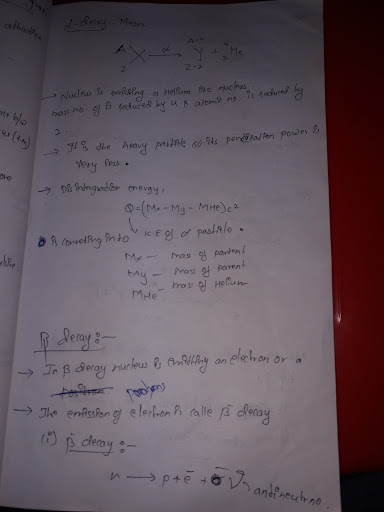 α-decay :- Mxm
A X Z —α→ A-4 Y Z-2 + 4 He 2
→ Nucleus is emitting a Helium like nucleus,
mass no. of is reduced by 4 & atomic no. is reduced by
2.
→ It is the heavy particle so its penetration power is
very less.
→ Disintegration energy,
Q=(Mx-My-MHe)c2
is converting into K.E of α particle.
Mx - mass of partent
My - mass of parent
MHe - mass of Helium
β decay :-
→ In β decay nucleus is emitting an electron or a
positron
→ The emission of electron is calle β- decay
(i) β- decay :-
n → p + e- + ν̄ antineutrno.